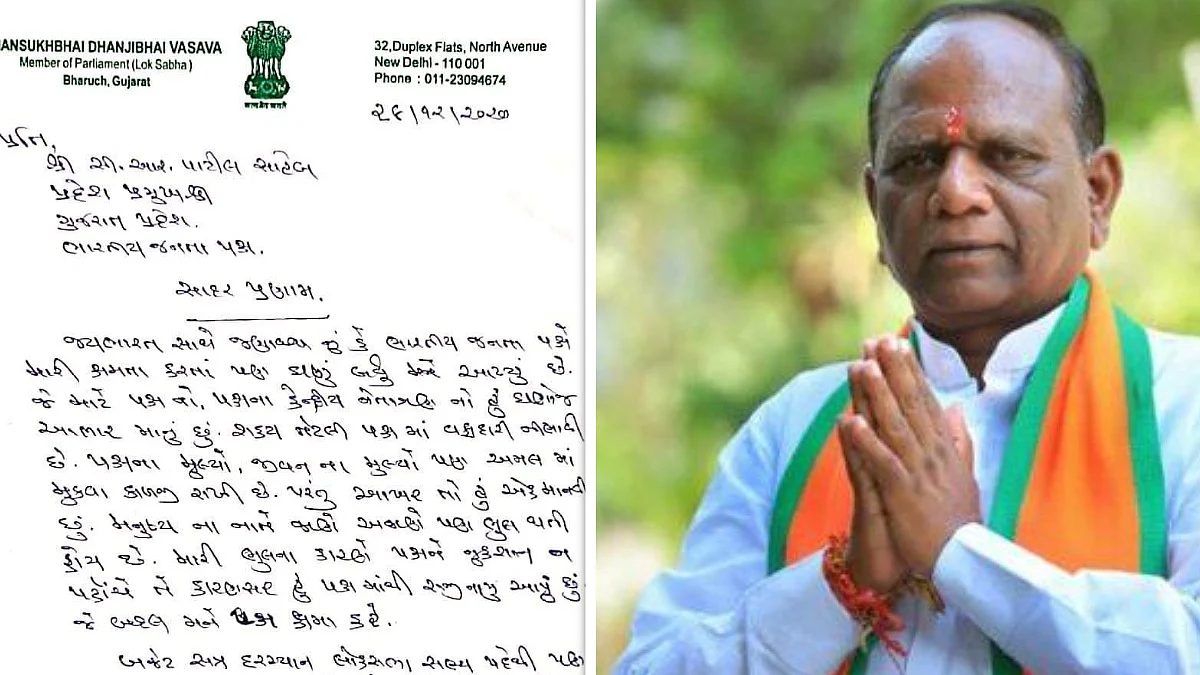 MANSUKHBHAI DHANJIBHAI VASAVA
Member of Parliament (Lok Sabha)
Bharuch, Gujarat
सत्यमेव जयते
32, Duplex Flats, North Avenue
New Delhi - 110 001
Phone : 011-23094674
૨૮/૧૨/૨૦૨૦
પ્રતિ,
શ્રી સી. આર. પાટીલ સાહેબ
પ્રદેશ પ્રમુખશ્રી
ગુજરાત પ્રદેશ.
ભારતીય જનતા પક્ષ.
સાદર પ્રણામ.
જયભારત સાથે જણાવવાનું કે ભારતીય જનતા પક્ષે
મારી ક્ષમતા કરતાં પણ ઘણું બધું મને આપ્યું છે.
જે માટે પક્ષ નો, પક્ષના કેન્દ્રીય નેતાગણ નો હું ઘણોજ
આભાર માનું છું. શક્ય એટલી પક્ષ માં વફાદારી નીભાવી
છે. પક્ષના મુલ્યો, જીવન ના મુલ્યો પણ અમલ માં
મુકવા કાળજી રાખી છે. પરંતુ આખર તો હું એક માનવી
છું. મનુષ્ય ના નાતે જાણે અજાણે પણ ભુલ થતી
હોય છે. મારી ભુલના કારણે પક્ષને નુકશાન ન
પહોંચે તે કારણસર હું પક્ષ માંથી રાજીનામુ આપું છું.
જે બદલ મને પક્ષ ક્ષમા કરે.
બજેટ સત્ર દરમ્યાન લોકસભા સભ્ય પદેથી પણ